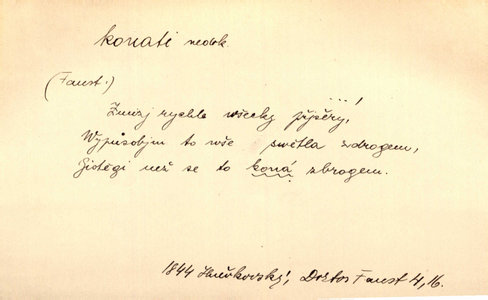 konati nedok.
(Faust:)
...!
Zmizj rychle wšecky přjšěry,
Wypůsobjm to wše swětla zdrogem,
Gistěgi než se to koná zbrogem.
1844 Hněvkovský, Doktor Faust 4,16.